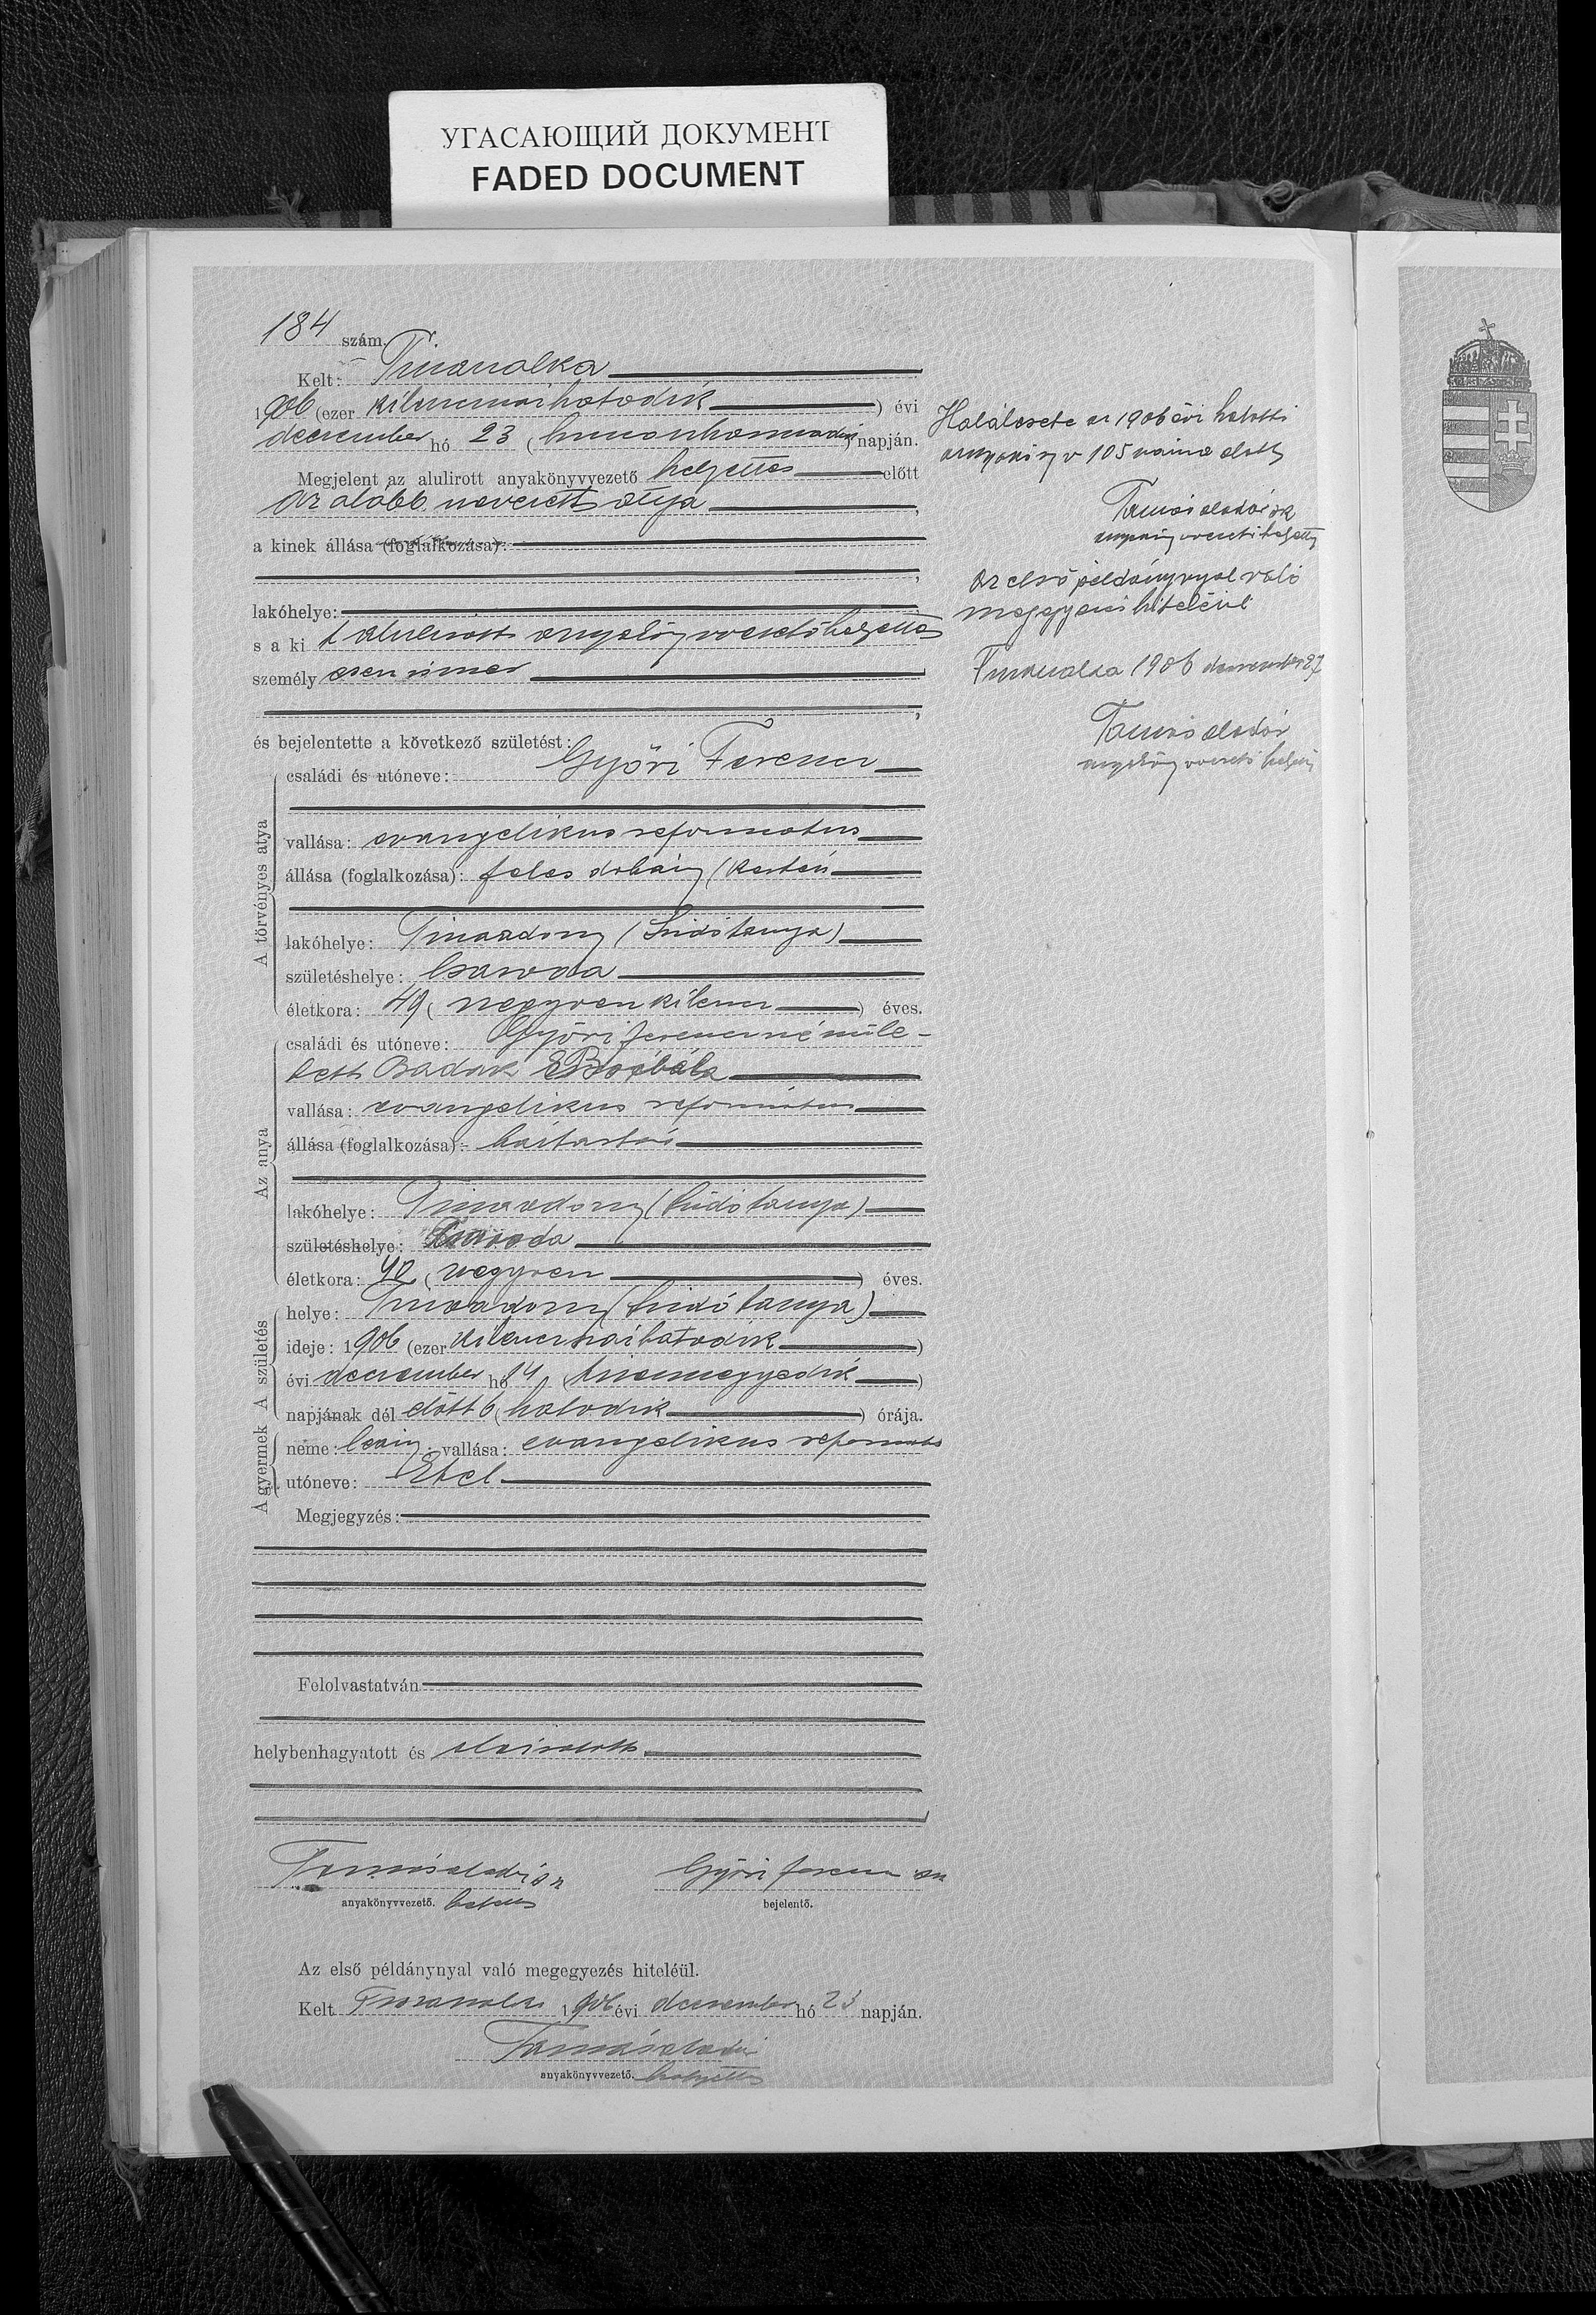 УГАСАЮЩИЙ ДОКУМЕНТ
FADED DOCUMENT
184 szám.
Kelt: Tiszaszalka
1906 (ezer kilenczszázhatodik) évi
deczember hó 23 (huszonharmadik) napján.
Megjelent az alulirott anyakönyvvezető helyettes előtt
az alább nevezett atya,
a kinek állása (foglalkozása):
lakóhelye:
s a ki t alulirott anyakönyvvezető helyettes
személy esen ismer
és bejelentette a következő születést:
A törvényes atya
családi és utóneve: Győri Ferencz
vallása: evangelikus reformatus
állása (foglalkozása): feles dohány kertész
lakóhelye: Tiszaadony (Lúdótanya)
születéshelye: Csaroda
életkora: 49 (negyvenkilencz) éves.
Az anya
családi és utóneve: Győri Ferenczné szüle-
tett Badak Borbála
vallása: evangelikus reformatus
állása (foglalkozása): háztartás
lakóhelye: Tiszaadony (Lúdótanya)
születéshelye: Csaroda
életkora: 40 (negyven) éves.
A születés
helye: Tiszaadony (Lúdó tanya)
ideje: 1906 (ezer kilenczszázhatodik)
évi deczember hó 14 (tizennegyedik)
napjának dél előtt 6 (hatodik) órája.
A gyermek
neme: leány; vallása: evangelikus reformatus
utóneve: Etel
Megjegyzés:
Felolvastatván
helybenhagyatott és aláiratott
Tamás Aladár sk Győri Ferencz sk
anyakönyvvezető. helyettes bejelentő.
Az első példánynyal való megegyezés hiteléül.
Kelt Tiszaszalka 1906 évi deczember hó 23 napján.
Tamás Aladár
anyakönyvvezető. helyettes
Halálesete az 1906 évi halotti
anyakönyv 105 száma alatt
Tamás Aladár sk
anyakönyvvezető helyettes
Az első példánynyal való
megegyezés hiteléül
Tiszaszalka 1906 deczember 27
Tamás Aladár
anyakönyvvezető helyettes